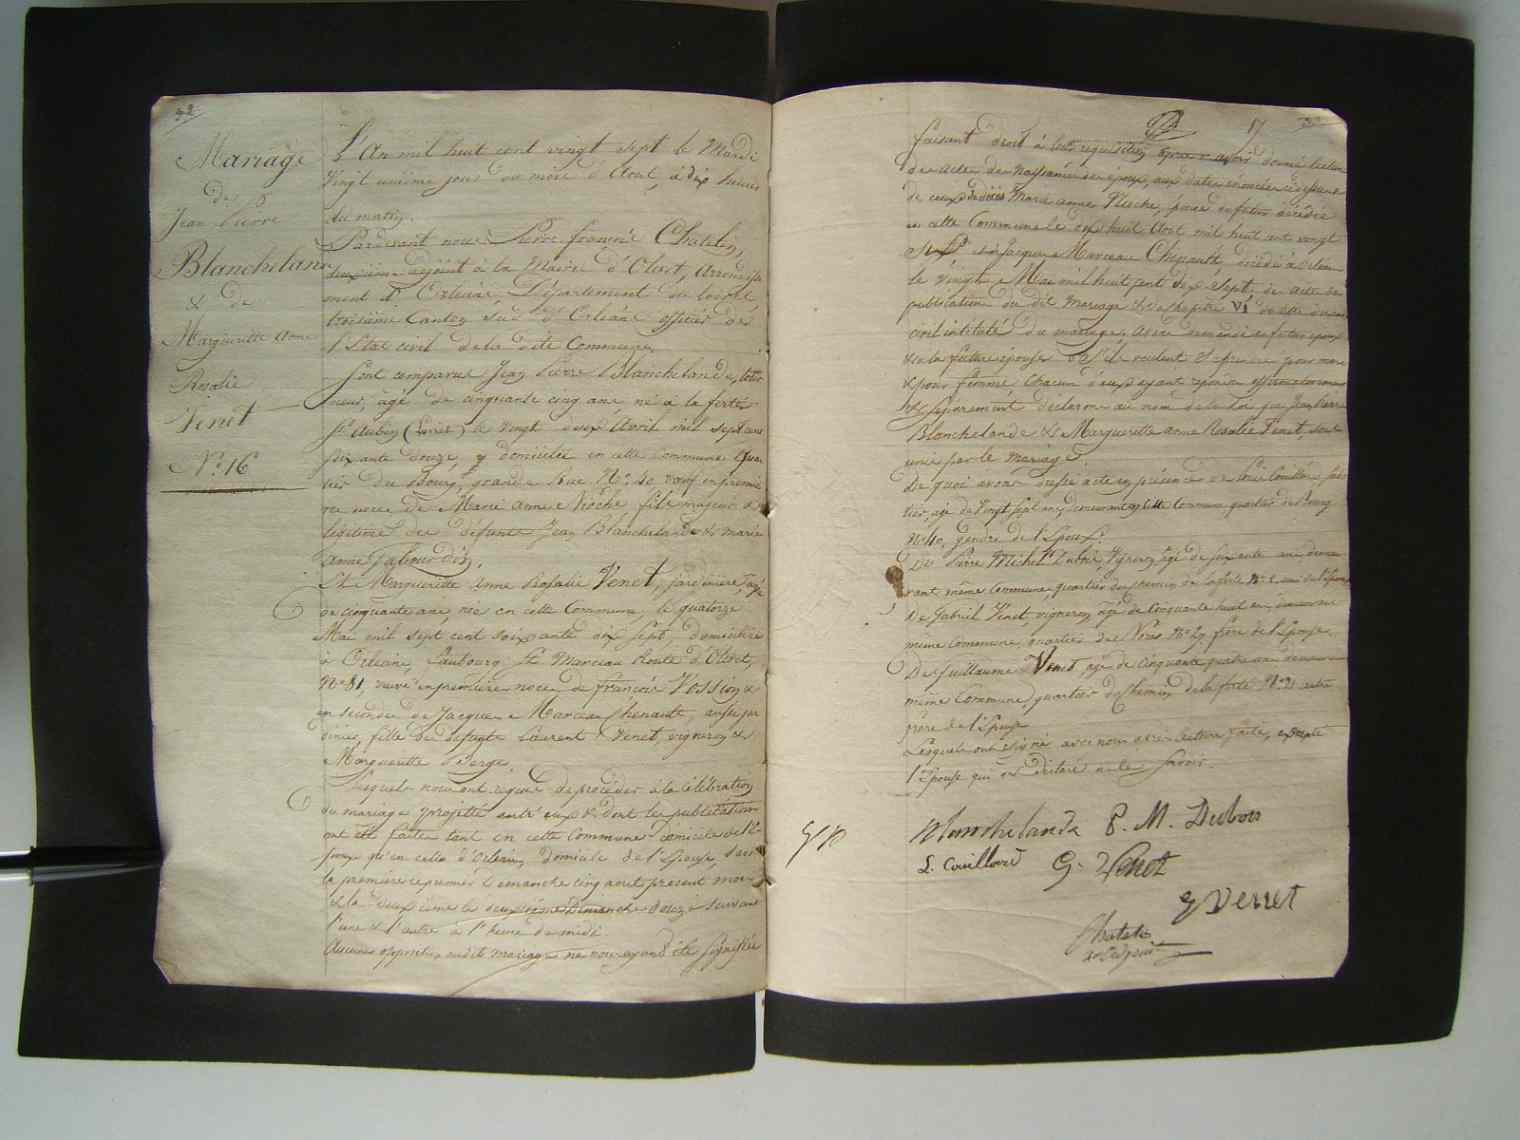 32
Mariage
de
Jean Pierre
Blanchelande
& de
Margueritte Anne
Rosalie
Venet
N.º 16
L'An mil huit cent vingt sept le Mardi
vingt unième jour du mois d'Aout, à dix heures
du matin.
Pardevant nous Pierre françois Chatelin,
deuxième adjoint à la Mairie d'Olivet, arrondisse
ment d'Orléans, Département du Loiret,
troisième Canton Sud d'Orléans officier de
l'Etat civil de la dite Commune,
Sont comparus Jean Pierre Blanchelande,
neur, agé de cinquante cinq ans né à la ferté
St. Aubin (Loiret) le vingt deux Avril mil sept cent
soixante douze, y domicilié en cette Commune quar
tier du Bourg, grande Rue N.º 40 veuf en premiè
re noce de Marie anne Rioche fils majeur &
légitime de défunts Jean Blanchelande & marie
anne
Et Margueritte Anne Rosalie Venet, jardinière, agée
de cinquante ans, née en cette Commune, le quatorze
Mai mil sept cent soixante dix sept, domiciliée
à Orléans, faubourg St. Marceau Route d'Olivet,
N.º 81, veuve en première noce de françois Vossion &
en seconde de Jacques Marceau Chenault, aussi jar
dinier, fille de défunts Laurent Venet, vigneron &
Margueritte Serge.
Lesquels nous ont requis de procéder à la célébration
du mariage projetté entre eux & dont les publications
ont été faites tant en cette Commune domicile de l'E-
poux qu'en celle d'Orléans, domicile de l'Epouse, savoir
la première le premier Dimanche cinq aout présent mois
& la deuxième le deuxième Dimanche douze suivant
l'une & l'autre à l'heure de midi.
Aucune opposition audit mariage ne nous ayant été signifiée
17
faisant droit à leur réquisition après avoir donné lecture
des actes de Naissance des époux, aux dates énoncées ci dessus &
de ceux de décès Marie anne Rioche, décédée
en cette Commune le dix huit Aout mil huit cent vingt
Jacques Marceau Chenault, décédé à Orléans
le vingt Mai mil huit cent dix sept, de acte de
publication du dit mariage & du chapitre VI du
civil intitulé du mariage, avons demandé au futur époux
& à la future épouse s'ils veulent se prendre pour mari
& pour femme chacun d'eux ayant répondu affirmativement
& séparément déclarons au nom de la Loi que Jean Pierre
Blanchelande & Margueritte anne Rosalie Venet, sont
unis par le mariage.
De quoi avons dressé acte en présence de Louis Couillard
tier, agé de vingt sept ans, demeurant en cette Commune quartier du Bourg
N.º 40, gendre de l'Epoux.
De Pierre Michel Dubois, vigneron agé de soixante ans, demeu
rant même Commune quartier du chemin de la ferté N.º 2 ami de l'Epoux
De Gabriel Venet, vigneron, agé de cinquante huit ans, demeurant
même Commune, quartier de N.º 29 frère de l'Epouse
De Guillaume Venet, agé de cinquante quatre ans demeurant
même Commune, quartier du chemin de la ferté N.º 21 autre
frère de l'Epouse
Lesquels ont signé avec nous après lecture faite, excepté
l'Epouse qui a déclaré ne le savoir.
Blanchelande P. M. Dubois
L. Couillard G. Venet
G Venet
Chatelin